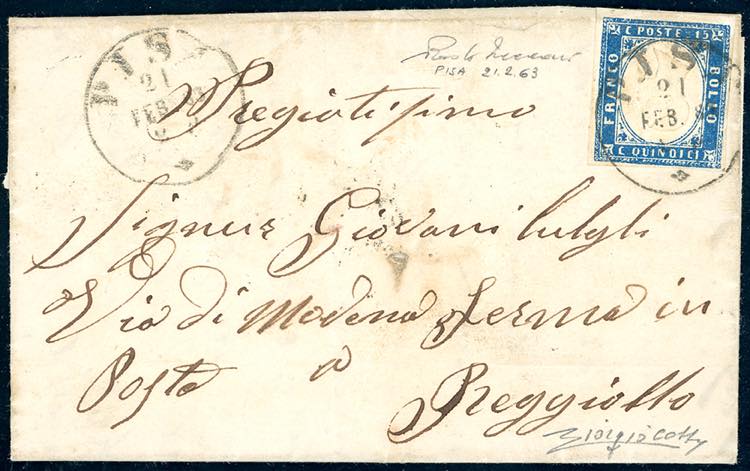 PIS
21
FEB. 63
PISA 21.2.63
C POSTE 15
FRANCO
BOLLO
C QUINDICI
PIS
21
FEB. 6
Pregiatissimo
Signur Giovani Luigli
Via di Modena ferma in
Posta a Reggiollo